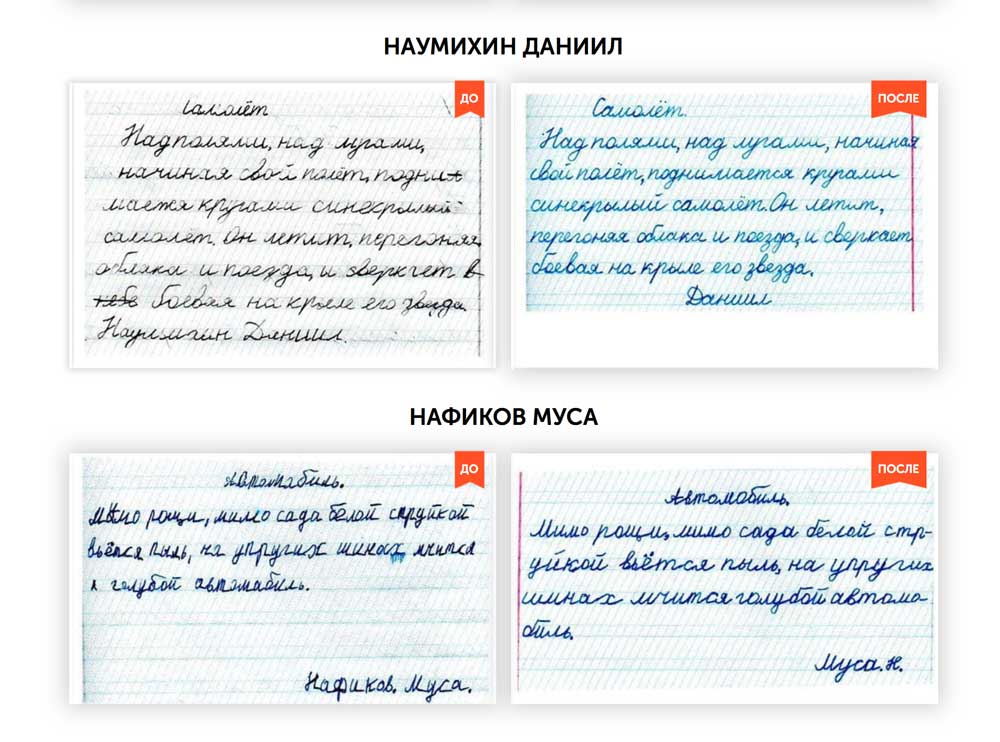 НАУМИХИН ДАНИИЛ
ДО
Самолёт
Над полями, над лугами,
начиная свой полёт, подни
мается кругами синекрылый
самолёт. Он летит, перегоняя
облака и поезда, и сверкает в
тебе боевая на крыле его звезда.
Наумихин Даниил.
ПОСЛЕ
Самолёт.
Над полями, над лугами, начиная
свой полёт, поднимается кругами
синекрылый самолёт. Он летит,
перегоняя облака и поезда, и сверкает
боевая на крыле его звезда.
Даниил
НАФИКОВ МУСА
ДО
Автомобиль.
Мимо рощи, мимо сада белой струйкой
вьётся пыль, на упругих шинах мчится
л голубой автомобиль.
Нафиков. Муса.
ПОСЛЕ
Автомобиль.
Мимо рощи, мимо сада белой стр-
уйкой вьётся пыль, на упругих
шинах мчится голубой автомо-
биль.
Муса. Н.